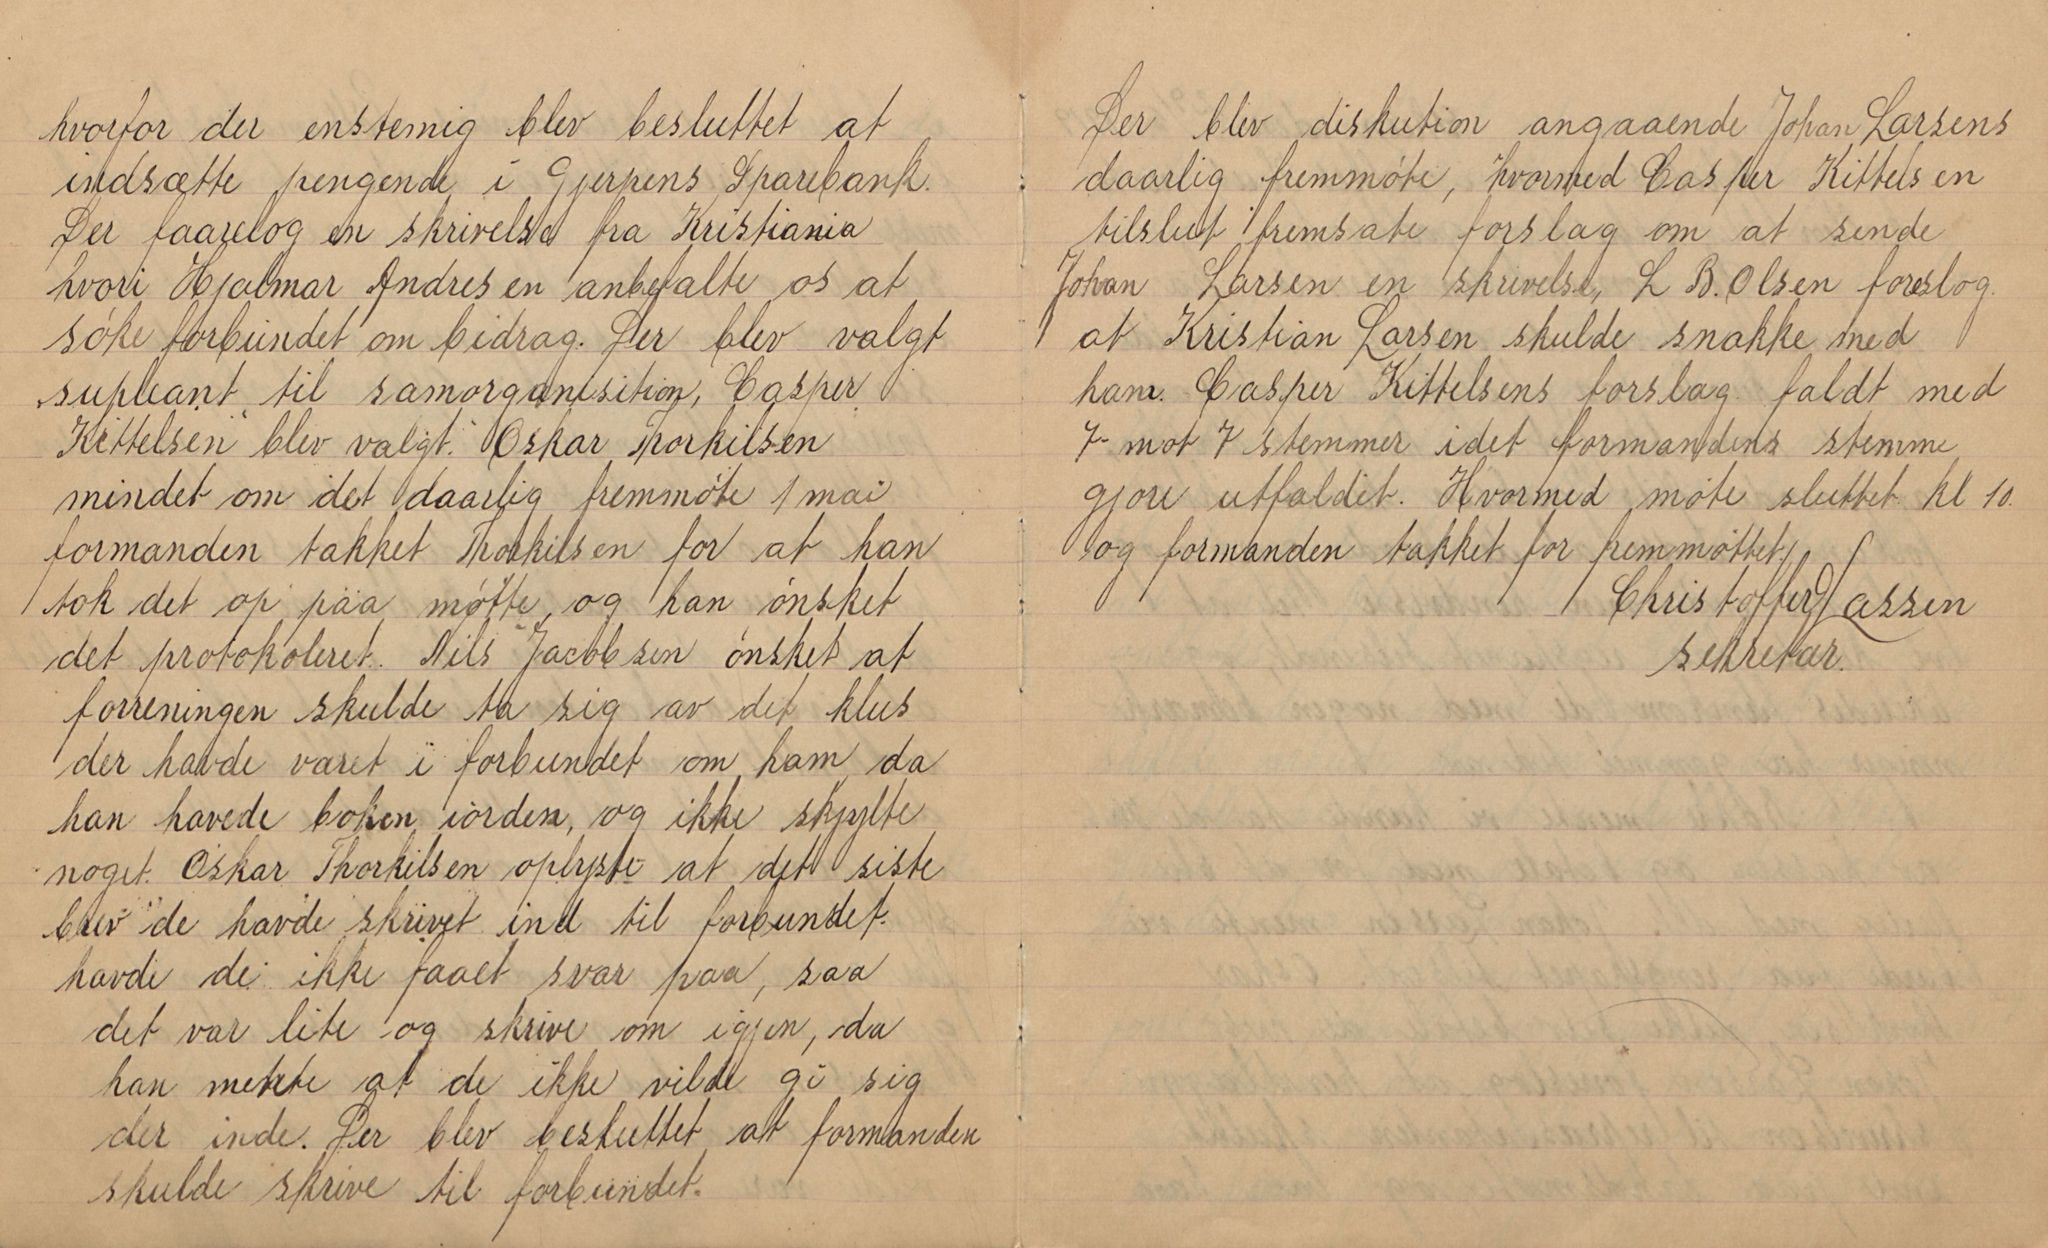 hvorfor der enstemig blev besluttet at
indsætte pengende i Gjerpens Sparebank.
Der faarelog en skrivelse fra Kristiania
hvori Hjalmar Andresen anbefalte os at
søke forbundet om bidrag. Der blev valgt
supleant til samorganisition, Casper
Kittelsen blev valgt. Oskar Thorkilsen
mindet om det daarlig fremmøte 1 mai
formanden takket Thorkilsen for at han
tok det op paa møtte, og han ønsket
det protokoleret. Nils Jacobsen ønsket at
forreningen skulde ta sig av det klus
der havde været i forbundet om ham da
han havede boken iorden, og ikke skyylte
noget. Oskar Thorkilsen oplyste at det siste
brev de havde skrivet ind til forbundet.
havde de ikke faaet svar paa, saa
det var lite og skrive om igjen, da
han mente at de ikke vilde gi sig
der inde. Der blev besluttet at formanden
skulde skrive til forbundet.
Der blev diskution angaaende Johan Larsens
daarlig fremmøte, hvormed Casper Kittelsen
tilslut fremsate forslag om at sende
Johan Larsen en skrivelse, L B. Olsen foreslog
at Kristian Larsen skulde snakke med
ham. Casper Kittelsens forslag faldt med
7 mot 7 stemmer idet formandens stemme
gjore utfaldet. Hvormed møte sluttet kl 10.
og formanden takket for fremmøttet
Christoffer Lassen
sekretær.